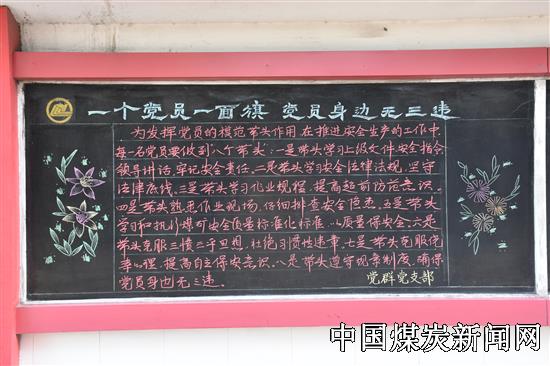 一个党员一面旗 党员身边无三违
为发挥党员的模范带头作用，在推进安全生产的工作中，
每一名党员要做到"八个带头"：一是带头学习上级文件、安全指令、
领导讲话，牢记安全责任。二是带头学习安全法律法规，坚守
法律底线。三是带头学习作业规程，提高超前防范意识。
四是带头熟悉作业现场，仔细排查安全隐患。五是带头
学习和执行煤矿安全质量标准化标准，以质量保安全。六是
带头克服三惯二乎思想，杜绝习惯性违章。七是带头克服侥
幸心理，提高自主保安意识。八是带头遵守规章制度，确保
党员身边无三违。
党群党支部
中国煤炭新闻网